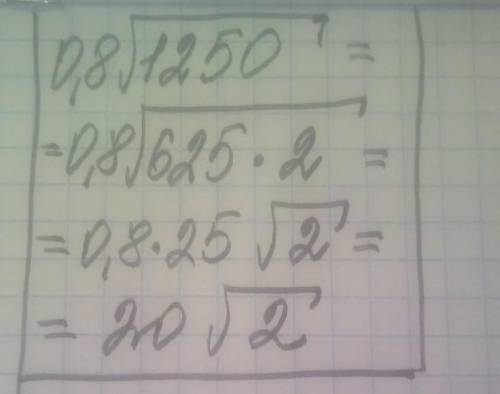 0,8√1250 =
= 0,8√625·2 =
= 0,8·25 √2 =
= 20 √2